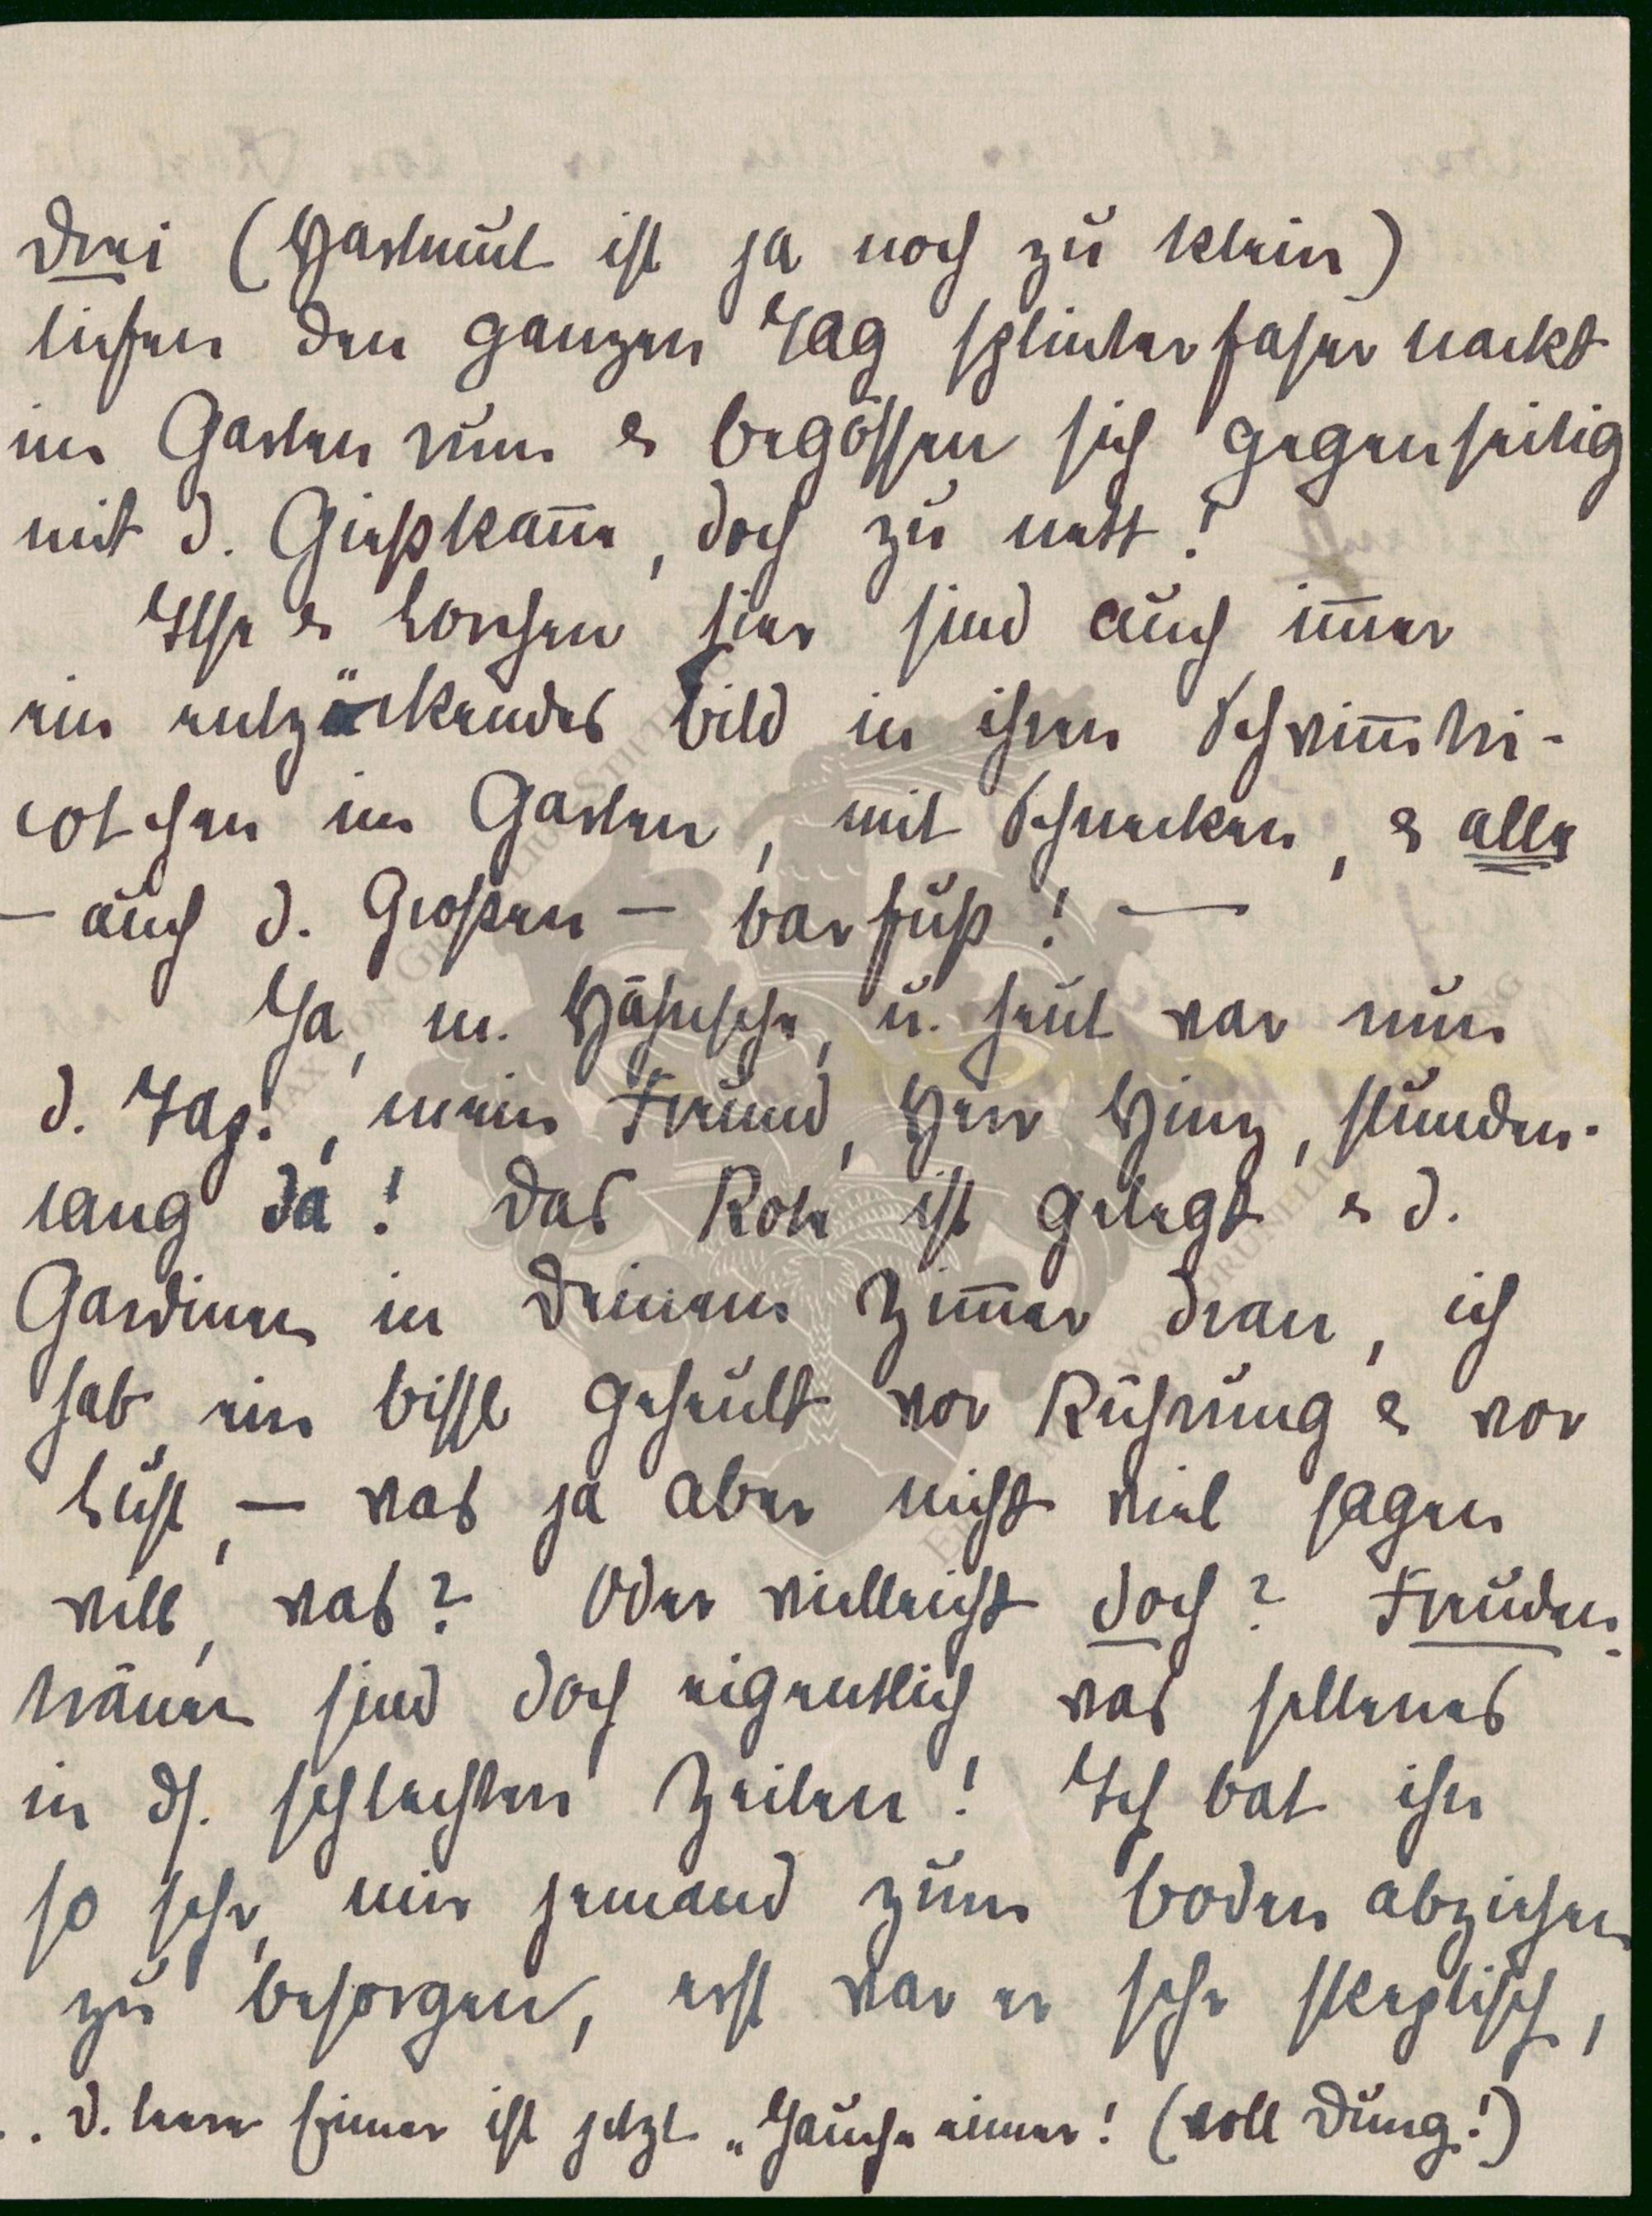 drei (Hartmut ist ja noch zu klein)
liefen den ganzen Tag splinterfaser nackt
im Garten rum & begossen sich gegenseitig
mit d. Gießkan̅e, doch zu nett!
Ilse & Lorchen hier sind auch im̅er
ein entzückendes Bild in ihren Schwim̅tri-
cotchen im Garten, mit Schnecken, & alle
— auch d. Großen — barfuß! —
Ja, m. Hähnsche, u. heut war nun
d. Tag!, mein Freund, Herr Hinz, stunden-
lang da! Das Rohr ist gelegt & d.
Gardinen in Deinem Zim̅er dran, ich
hab ein bissl geheult vor Rührung & vor
Lust, — was ja aber nicht viel sagen
will, was? Oder vielleicht doch? Freuden-
tränen sind doch eigentlich was seltenes
in ds. schlechten Zeiten! Ich bat ihn
so sehr, mir jemand zum Boden abziehen
zu besorgen, erst war er sehr skeptisch,
d. leere Eimer ist jetzt „Jauche eimer! (voll Dung!)
MAX VON GRUNELIUS-STIFTUNG